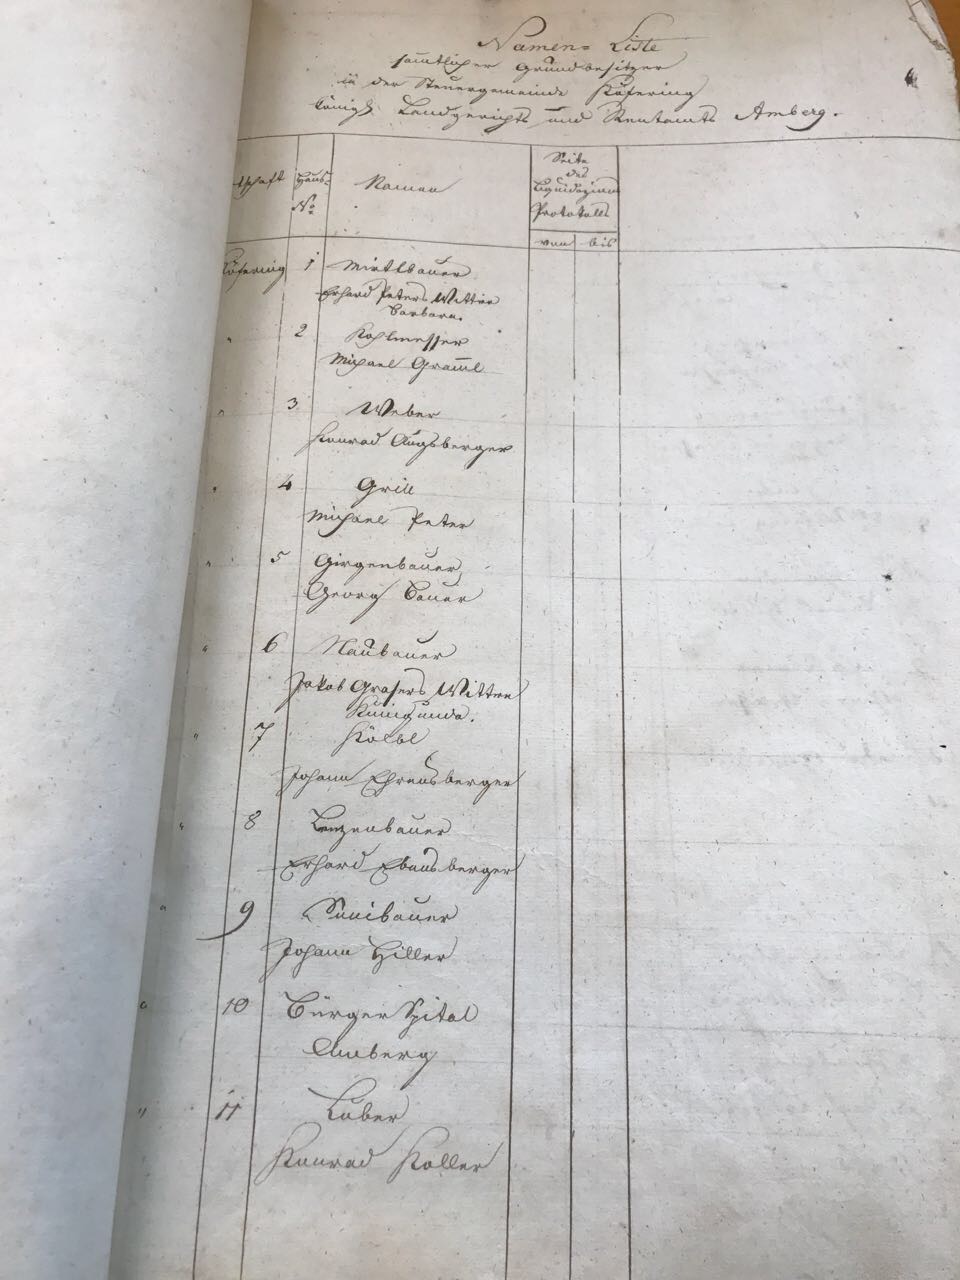 Namen= Liste
sämtlicher Grundbesitzer
in der Steuergemeinde Köfering
königl. Landgerichts und Rentamts Amberg.
tschaft Haus- No Namen Seite des Liquidazions Protokolls
von bis
Köfering 1 Mirtlbauer
Erhard Peters Wittwe
Barbara.
" 2 Kohlmesser
Michael Gramml
" 3 Weber
Konrad Augsberger
" 4 Grill
Michael Peter
" 5 Girgenbauer
Georg Bauer
" 6 Naubauer
Jakob Grasers Wittwe
Kunigunda.
" 7 Kölbl
Johann Ehrensberger
" 8 Lenzenbauer
Erhard Ebensberger
" 9
Johann Hiller
" 10 Bürger Spital
Amberg
" 11 Luber
Konrad Koller